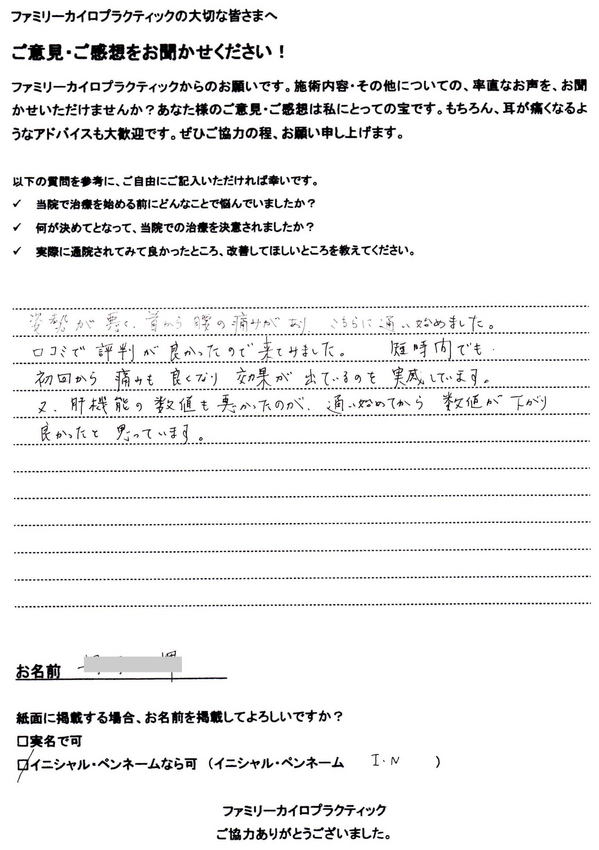 ファミリーカイロプラクティックの大切な皆さまへ
ご意見・ご感想をお聞かせください！
ファミリーカイロプラクティックからのお願いです。施術内容・その他についての、率直なお声を、お聞
かせいただけませんか？あなた様のご意見・ご感想は私にとっての宝です。もちろん、耳が痛くなるよ
うなアドバイスも大歓迎です。ぜひご協力の程、お願い申し上げます。
以下の質問を参考に、ご自由にご記入いただければ幸いです。
✓ 当院で治療を始める前にどんなことで悩んでいましたか？
✓ 何が決めてとなって、当院での治療を決意されましたか？
✓ 実際に通院されてみて良かったところ、改善してほしいところを教えてください。
姿勢が悪く、首から腰の痛みがあり、こちらに通い始めました。
口コミで評判が良かったので来てみました。 短時間でも、
初回から痛みも良くなり効果が出ているのを実感しています。
又、肝機能の数値も悪かったのが、通い始めてから数値が下がり
良かったと思っています。
お名前
紙面に掲載する場合、お名前を掲載してよろしいですか？
□実名で可
☑イニシャル・ペンネームなら可 （イニシャル・ペンネーム I・N ）
ファミリーカイロプラクティック
ご協力ありがとうございました。